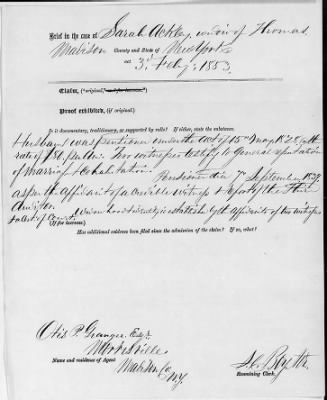 Brief in the case of Sarah Ackley, widow of Thomas
Madison County and State of New York
act 3d Feby. 1853
Claim, (original,
Proof exhibited, (if original.)
Is it documentary, traditionary, or supported by rolls? If either, state the substance.
Husband was pensioner under the act of 15th May 1828, at the
rate of $80, pr. An. Two witnesses testify to General reputation
of Marriage & Cohabitation.
Pensioner died 7 September 1838
as per the Affidavit of a credible witness & report of the Third
Auditor.
Widow hood & identity is established by the affidavits of two witnesses
& Cert of Court.
(If for increase.)
Has additional evidence been filed since the admission of the claim? If so, what?
Otis P. Granger, Esqr.
Morrisville
Name and residence of Agent.
Madison Co.
N.Y.
Examining Clerk.